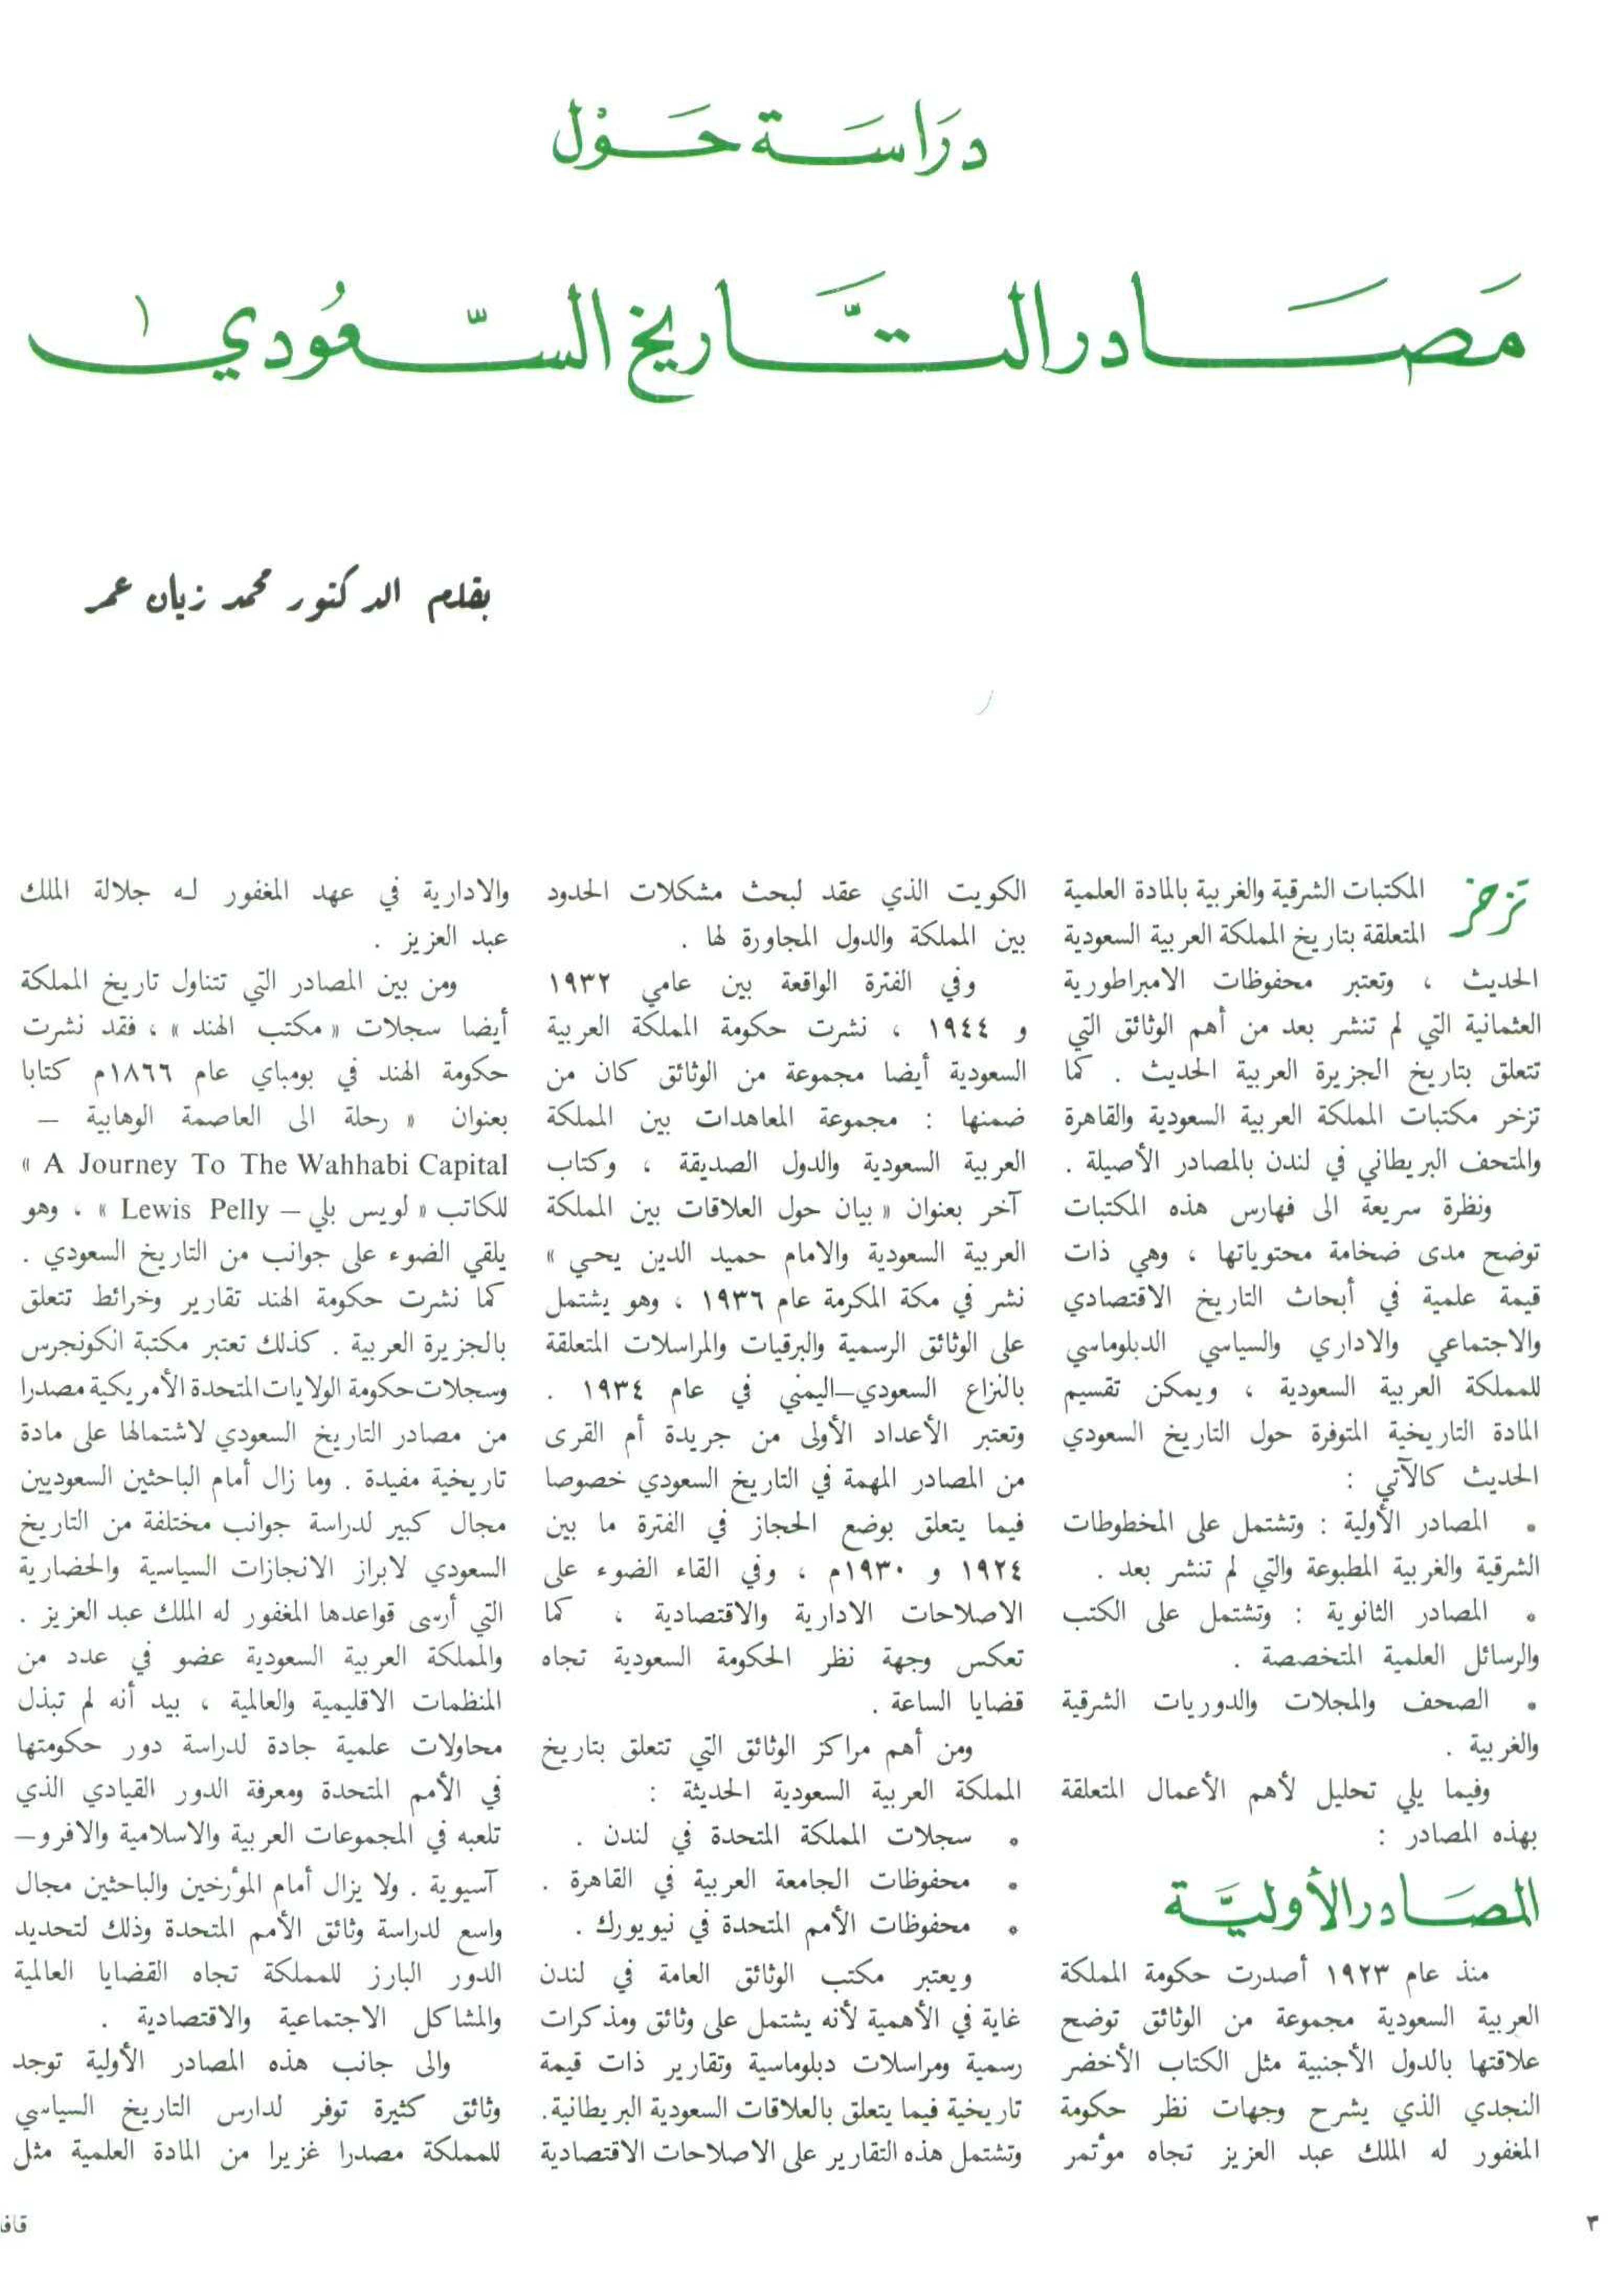 دراسة حول
مصادر التاريخ السعودي
بقلم الدكتور محمد زيان عمر
تزخر المكتبات الشرقية والغربية بالمادة العلمية
المتعلقة بتاريخ المملكة العربية السعودية
الحديث ، وتعتبر محفوظات الامبراطورية
العثمانية التي لم تنشر بعد من أهم الوثائق التي
تتعلق بتاريخ الجزيرة العربية الحديث . كما
تزخر مكتبات المملكة العربية السعودية والقاهرة
والمتحف البريطاني في لندن بالمصادر الأصيلة .
ونظرة سريعة الى فهارس هذه المكتبات
توضح مدى ضخامة محتوياتها ، وهي ذات
قيمة علمية في أبحاث التاريخ الاقتصادي
والاجتماعي والاداري والسياسي الدبلوماسي
للمملكة العربية السعودية ، ويمكن تقسيم
المادة التاريخية المتوفرة حول التاريخ السعودي
الحديث كالآتي :
• المصادر الأولية : وتشتمل على المخطوطات
الشرقية والغربية المطبوعة والتي لم تنشر بعد .
• المصادر الثانوية : وتشتمل على الكتب
والرسائل العلمية المتخصصة .
• الصحف والمجلات والدوريات الشرقية
والغربية .
وفيما يلي تحليل لأهم الأعمال المتعلقة
بهذه المصادر :
المصادر الأولية
منذ عام ١٩٢٣ أصدرت حكومة المملكة
العربية السعودية مجموعة من الوثائق توضح
علاقتها بالدول الأجنبية مثل الكتاب الأخضر
النجدي الذي يشرح وجهات نظر حكومة
المغفور له الملك عبد العزيز تجاه موٴتمر
الكويت الذي عقد لبحث مشكلات الحدود
بين المملكة والدول المجاورة لها .
وفي الفترة الواقعة بين عامي ١٩٣٢
و ١٩٤٤ ، نشرت حكومة المملكة العربية
السعودية أيضا مجموعة من الوثائق كان من
ضمنها : مجموعة المعاهدات بين المملكة
العربية السعودية والدول الصديقة ، وكتاب
آخر بعنوان « بيان حول العلاقات بين المملكة
العربية السعودية والامام حميد الدين يحي »
نشر في مكة المكرمة عام ١٩٣٦ ، وهو يشتمل
على الوثائق الرسمية والبرقيات والمراسلات المتعلقة
بالنزاع السعودي–اليمني في عام ١٩٣٤ .
وتعتبر الأعداد الأولى من جريدة أم القرى
من المصادر المهمة في التاريخ السعودي خصوصا
فيما يتعلق بوضع الحجاز في الفترة ما بين
١٩٢٤ و ١٩٣٠م ، وفي القاء الضوء على
الاصلاحات الادارية والاقتصادية ، كما
تعكس وجهة نظر الحكومة السعودية تجاه
قضايا الساعة .
ومن أهم مراكز الوثائق التي تتعلق بتاريخ
المملكة العربية السعودية الحديثة :
• سجلات المملكة المتحدة في لندن .
• محفوظات الجامعة العربية في القاهرة .
• محفوظات الأمم المتحدة في نيويورك .
ويعتبر مكتب الوثائق العامة في لندن
غاية في الأهمية لأنه يشتمل على وثائق ومذكرات
رسمية ومراسلات دبلوماسية وتقارير ذات قيمة
تاريخية فيما يتعلق بالعلاقات السعودية البريطانية.
وتشتمل هذه التقارير على الاصلاحات الاقتصادية
والادارية في عهد المغفور له جلالة الملك
عبد العزيز .
ومن بين المصادر التي تتناول تاريخ المملكة
أيضا سجلات « مكتب الهند » ، فقد نشرت
حكومة الهند في بومباي عام ١٨٦٦م كتابا
بعنوان « رحلة الى العاصمة الوهابية –
A Journey To The Wahhabi Capital »
للكاتب « لويس بلي – Lewis Pelly » ، وهو
يلقي الضوء على جوانب من التاريخ السعودي .
كما نشرت حكومة الهند تقارير وخرائط تتعلق
بالجزيرة العربية . كذلك تعتبر مكتبة الكونجرس
وسجلات حكومة الولايات المتحدة الأمريكية مصدرا
من مصادر التاريخ السعودي لاشتمالها على مادة
تاريخية مفيدة . وما زال أمام الباحثين السعوديين
مجال كبير لدراسة جوانب مختلفة من التاريخ
السعودي لابراز الانجازات السياسية والحضارية
التي أرسى قواعدها المغفور له الملك عبد العزيز .
والمملكة العربية السعودية عضو في عدد من
المنظمات الاقليمية والعالمية ، بيد أنه لم تبذل
محاولات علمية جادة لدراسة دور حكومتها
في الأمم المتحدة ومعرفة الدور القيادي الذي
تلعبه في المجموعات العربية والاسلامية والافرو–
آسيوية . ولا يزال أمام الموٴرخين والباحثين مجال
واسع لدراسة وثائق الأمم المتحدة وذلك لتحديد
الدور البارز للمملكة تجاه القضايا العالمية
والمشاكل الاجتماعية والاقتصادية .
والى جانب هذه المصادر الأولية توجد
وثائق كثيرة توفر لدارس التاريخ السياسي
للمملكة مصدرا غزيرا من المادة العلمية مثل
٣
قاف